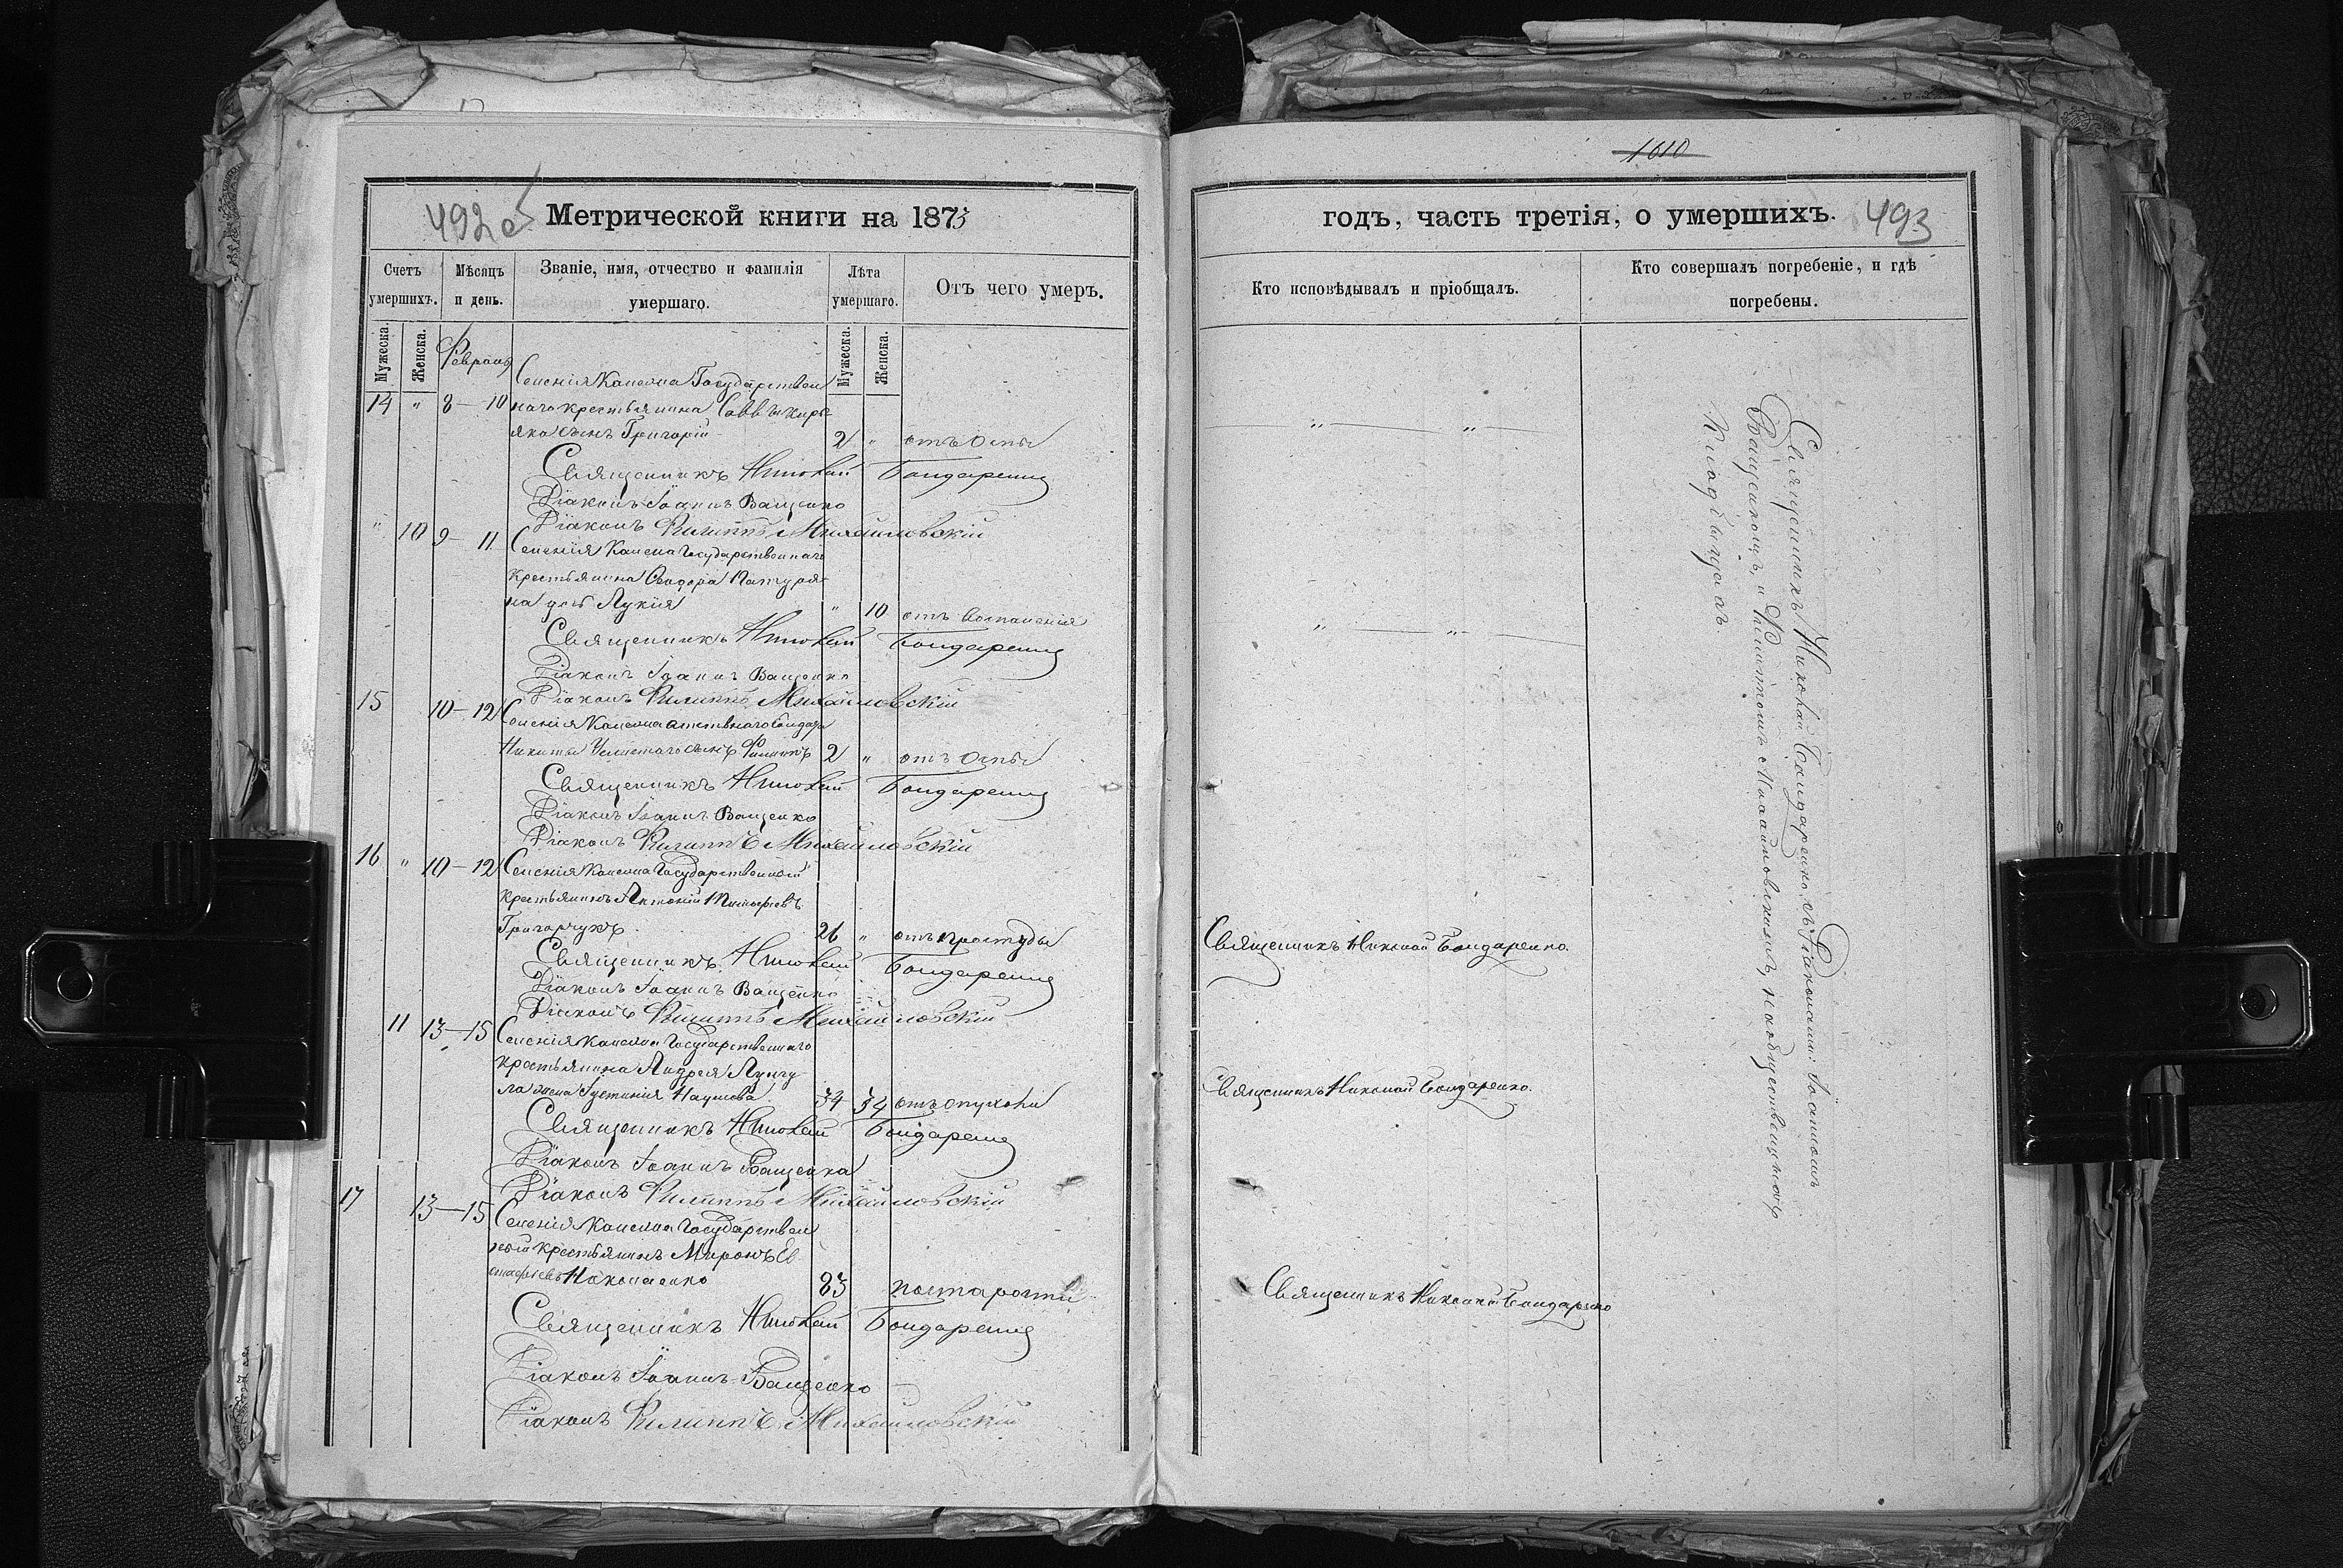 492 об
Метрической книги на 1873
Счетъ умершихъ.
Мѣсяцъ и день.
Званіе, имя, отчество и фамилія умершаго.
Лѣта умершаго.
Отъ чего умеръ.
Мужеска.
Женска.
Мужеска.
Женска.
Февраль
Селенія Каменна Государствен
14 " 8-10 наго крестьянина Саввы Киріяка сынъ Григорій 2 " отъ оспы
Священникъ Николай Бондаренко
Діаконъ Іоаннъ Ващенко
Діаконъ Филиппъ Михайловскій
" 10 9-11 Селенія Каменна Государственнаго
крестьянина Ѳеодора
на дочь Лукія " 10 отъ воспаленія
Священникъ Николай Бондаренко
Діаконъ Іоаннъ Ващенко
Діаконъ Филиппъ Михайловскій
15 10-12 Селенія Каменна
Никиты сынъ Филиппъ 2 " отъ оспы
Священникъ Николай Бондаренко
Діаконъ Іоаннъ Ващенко
Діаконъ Филиппъ Михайловскій
16 " 10-12 Селенія Каменна Государственной
крестьянинъ Антоній Тимофеевъ
Григорчукъ 26 " отъ простуды
Священникъ Николай Бондаренко
Діаконъ Іоаннъ Ващенко
Діаконъ Филиппъ Михайловскій
11 13-15 Селенія Каменна Государственнаго
крестьянина Андрея Лунгу
ла жена Іустинія Наумова 34 34 отъ опухоли
Священникъ Николай Бондаренко
Діаконъ Іоаннъ Ващенко
Діаконъ Филиппъ Михайловскій
17 13-15 Селенія Каменна Государствен
ной крестьянинъ Миронъ Ев
стафіевъ 83 по старости
Священникъ Николай Бондаренко
Діаконъ Іоаннъ Ващенко
Діаконъ Филиппъ Михайловскій
1010
годъ, часть третія, о умершихъ.
493
Кто исповѣдывалъ и пріобщалъ.
Кто совершалъ погребеніе, и гдѣ погребены.
" "
" "
Священникъ Николай Бондаренко.
Священникъ Николай Бондаренко.
Священникъ Николай Бондаренко
Священникъ Николай Бондаренко съ Діаконами: Іоанномъ
Ващенкомъ, и Филиппомъ Михайловскимъ, на общественномъ
Кладбищѣ.